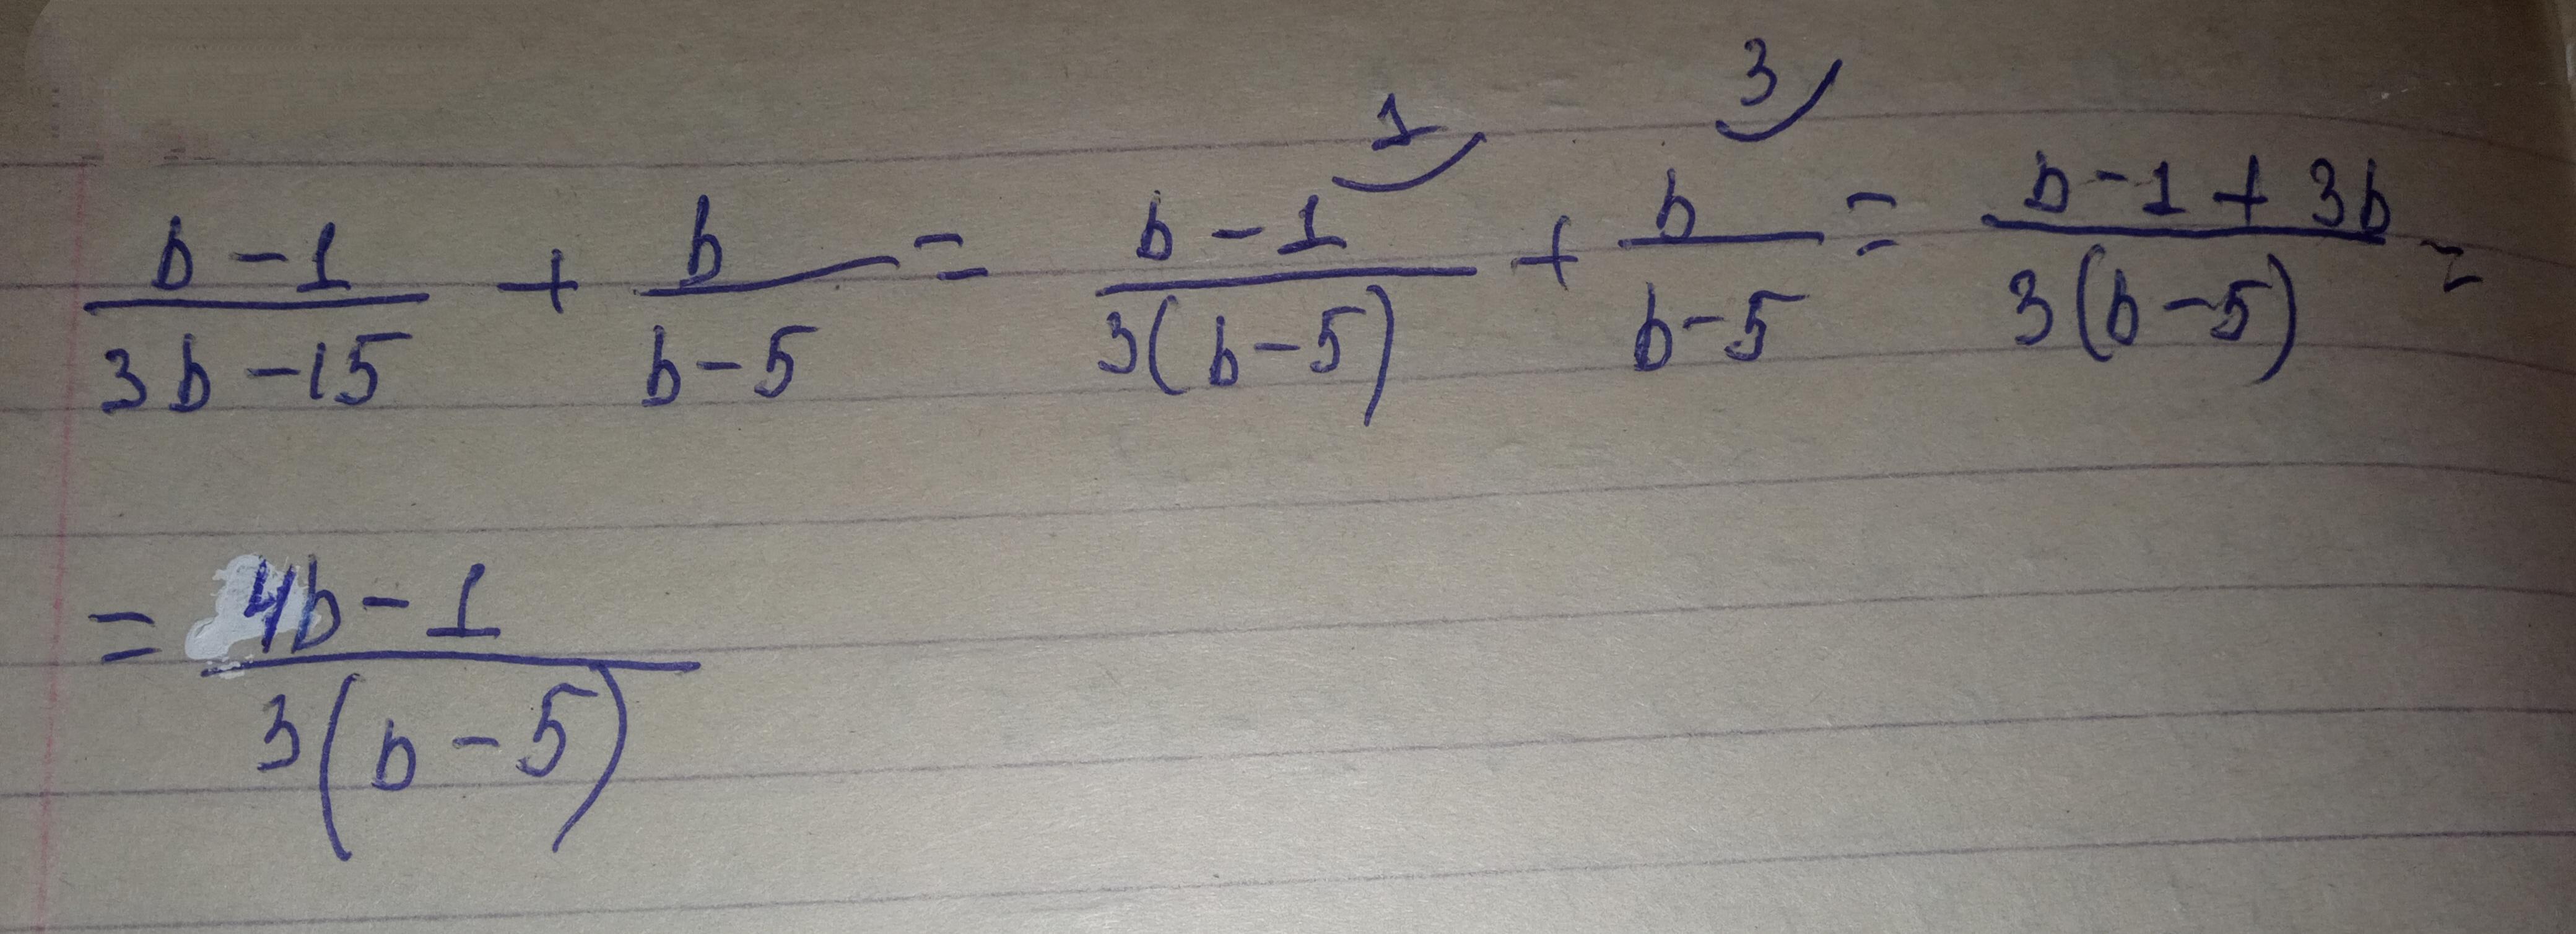 1 3
b-1/3b-15 + b/b-5 = b-1/3(b-5) + b/b-5 = b-1+3b/3(b-5) =
= 4b-1/3(b-5)